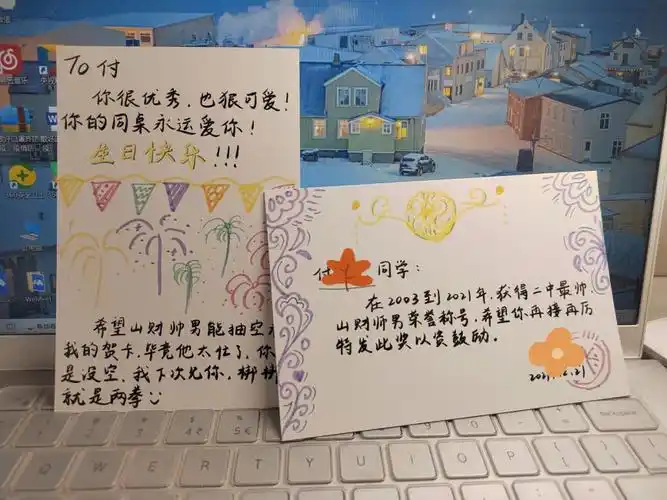 To 付
你很优秀.也狠可爱!
你的同桌永远爱你!
生日快乐!!!
希望山财帅男能抽空
我的贺卡.毕竟他太忙了.你
是没空.我下次光你.梆梆
就是两拳
付 同学:
在2003到2021年.获得二中最帅.
山财帅男荣誉称号.希望你再接再厉
特发此奖以资鼓励.
Q
W
E
R
T
Y
U
I
O
P
Backspace